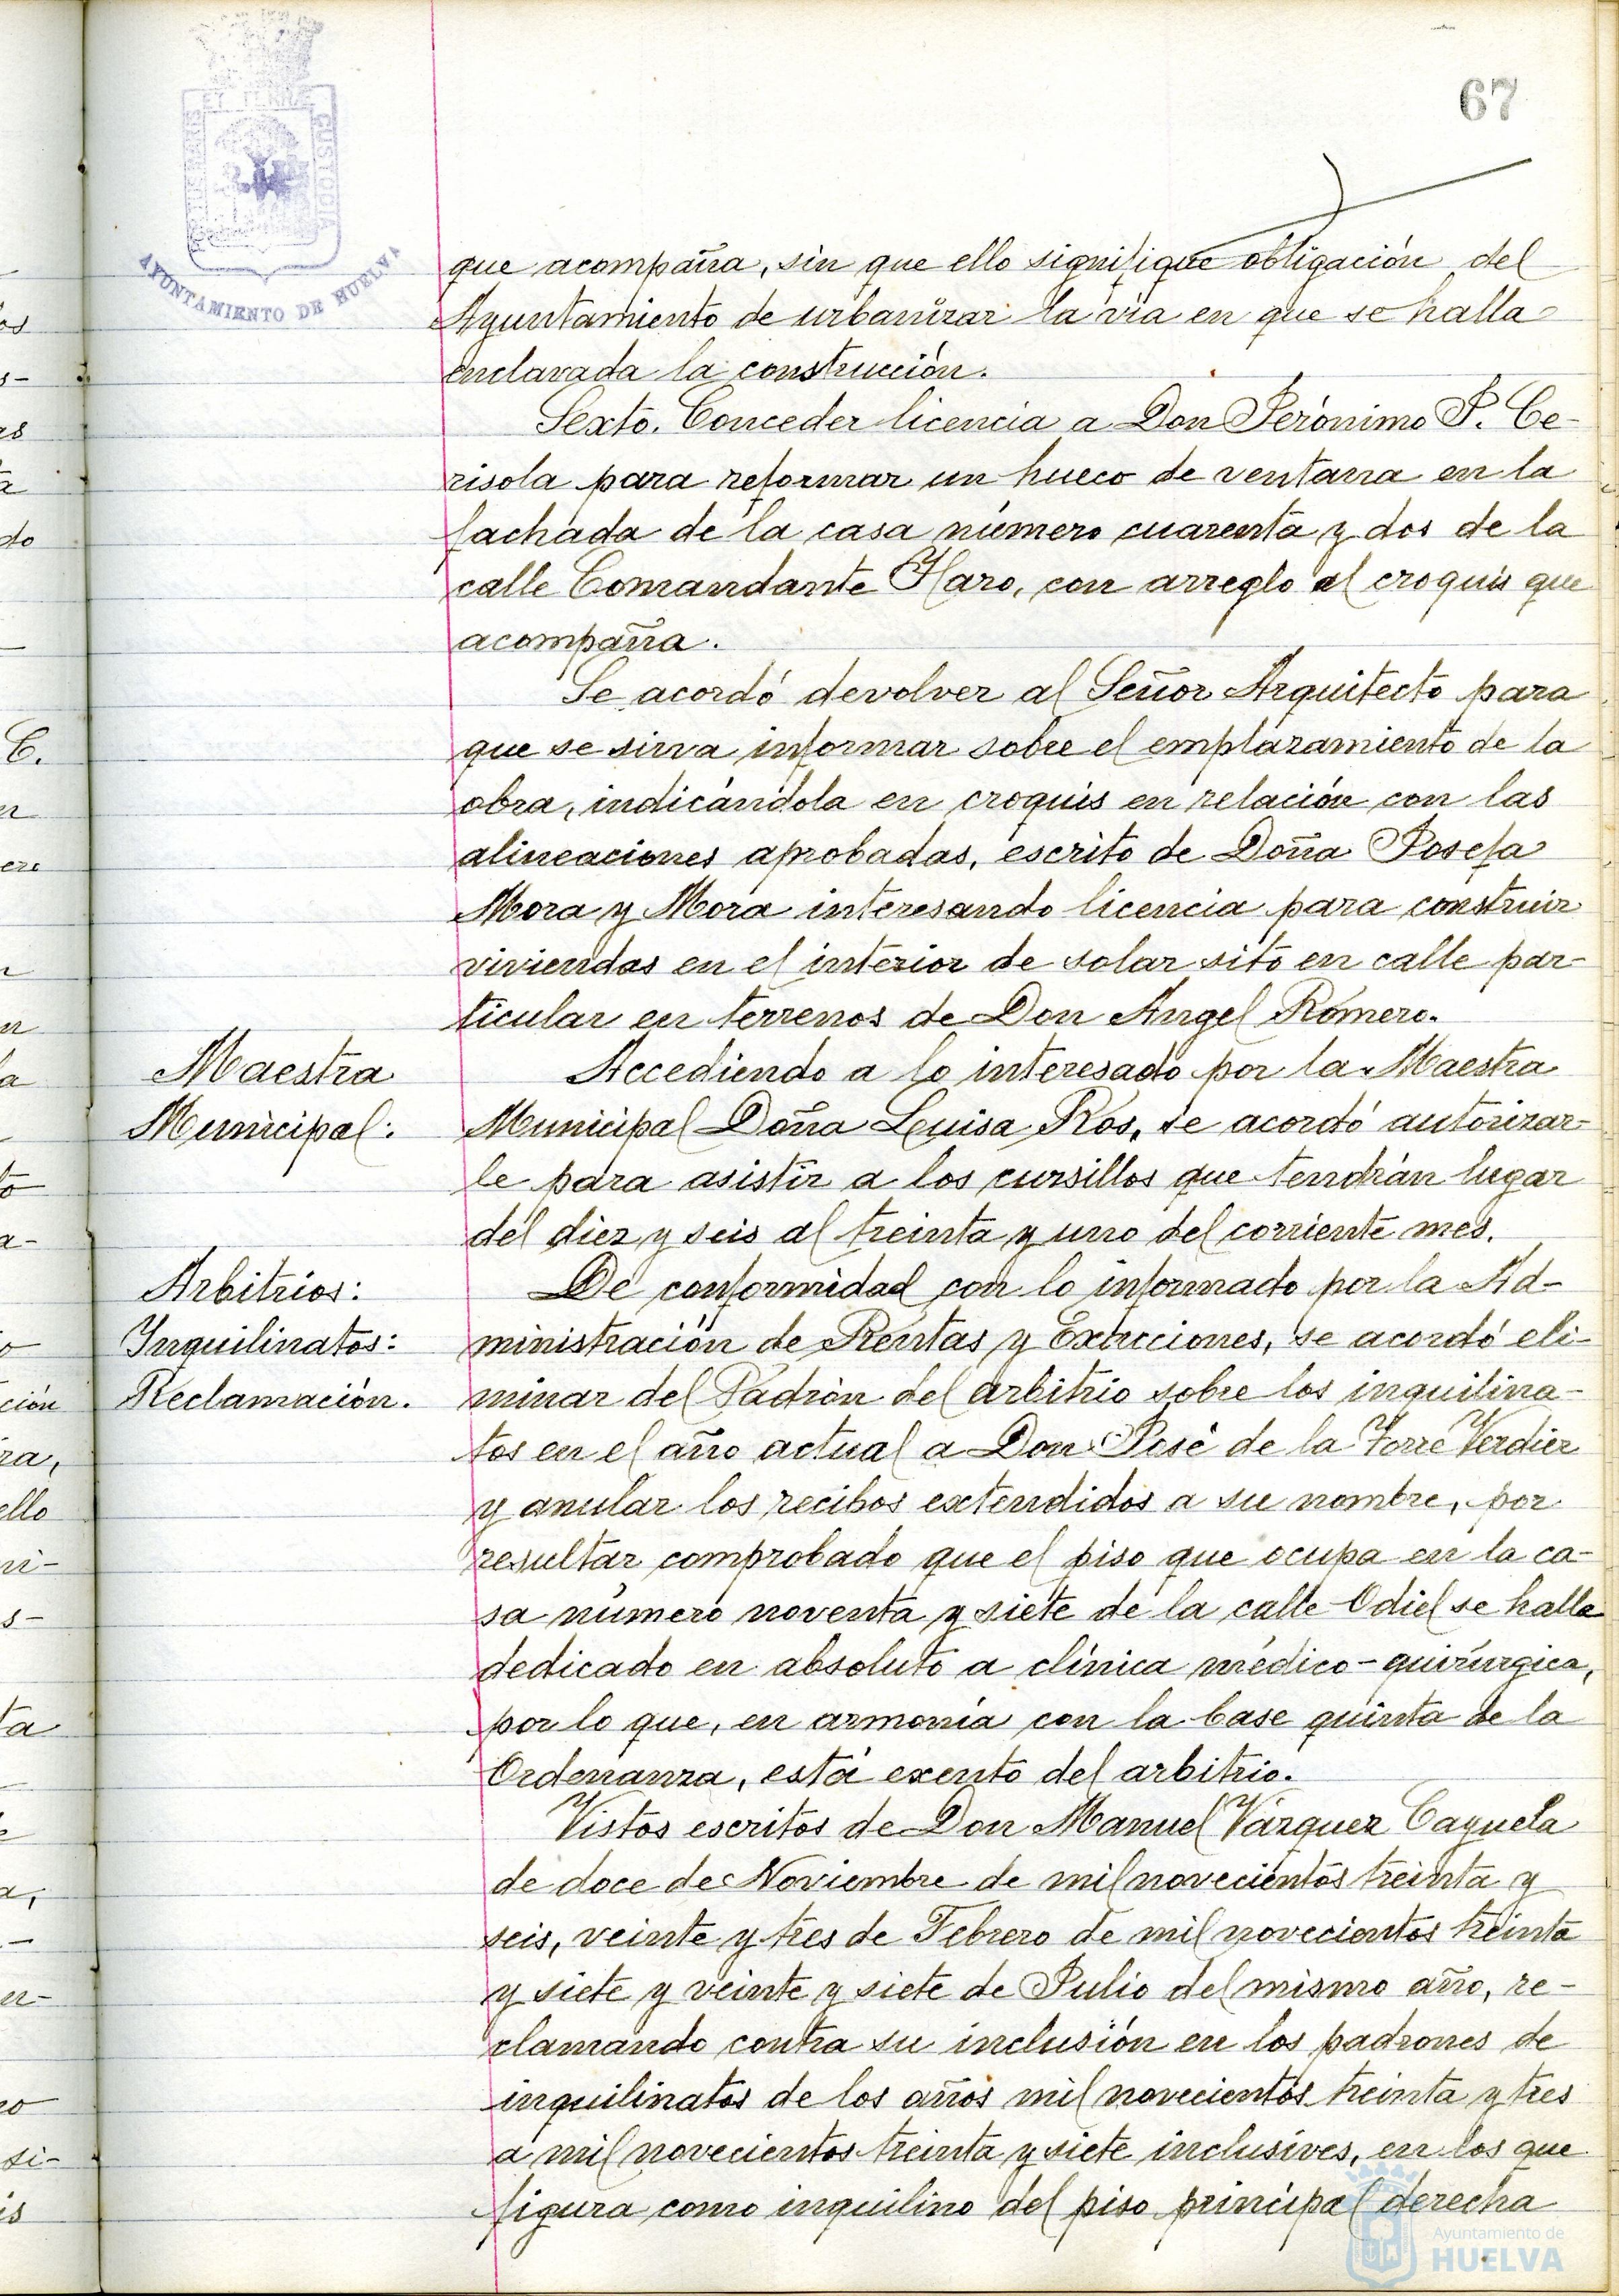 67
ET TERRÆ
CUSTODIA
AYUNTAMIENTO DE HUELVA
que acompaña, sin que ello signifique obligación del
Ayuntamiento de urbanizar la via en que se halla
enclavada la construcción.
Sexto. Conceder licencia a Don Jerónimo J. Ce-
risola para reformar un hueco de ventana en la
fachada de la casa número cuarenta y dos de la
calle Comandante Haro, con arreglo al croquis que
acompaña.
Se acordó devolver al Señor Arquitecto para
que se sirva informar sobre el emplazamiento de la
obra, indicándola en croquis en relación con las
alineaciones aprobadas, escrito de Doña Josefa
Mora y Mora interesando licencia para construir
viviendas en el interior de solar sito en calle par-
ticular en terrenos de Don Angel Romero.
Maestra
Municipal:
Accediendo a lo interesado por la Maestra
Municipal Doña Luisa Ros, se acordó autorizar-
le para asistir a los cursillos que tendrán lugar
del diez y seis al treinta y uno del corriente mes.
Arbitrios:
Inquilinatos:
Reclamación.
De conformidad con lo informado por la Ad-
ministración de Rentas y Exacciones, se acordó eli-
minar del Padrón del arbitrio sobre los inquilina-
tos en el año actual a Don José de la Torre Verdier
y anular los recibos extendidos a su nombre, por
resultar comprobado que el piso que ocupa en la ca-
sa número noventa y siete de la calle Odiel se halla
dedicado en absoluto a clínica médico-quirúrgica,
por lo que, en armonía con la base quinta de la
Ordenanza, está exento del arbitrio.
Vistos escritos de Don Manuel Vázquez Cayuela
de doce de Noviembre de mil novecientos treinta y
seis, veinte y tres de Febrero de mil novecientos treinta
y siete y veinte y siete de Julio del mismo año, re-
clamando contra su inclusión en los padrones de
inquilinatos de los años mil novecientos treinta y tres
a mil novecientos treinta y siete inclusives, en los que
figura como inquilino del piso principal derecha
Ayuntamiento de
HUELVA